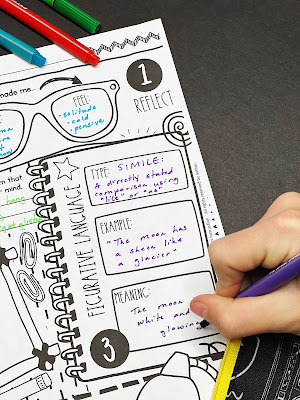 made me...
FEEL:
-solitude
-cold
-pensive
1
REFLECT
FIGURATIVE LANGUAGE
TYPE: SIMILE:
A directly stated
comparison using
"like" or "as"
EXAMPLE:
"The moon has
a sheen like
a glacier"
MEANING:
The moon
white and
glowing
3